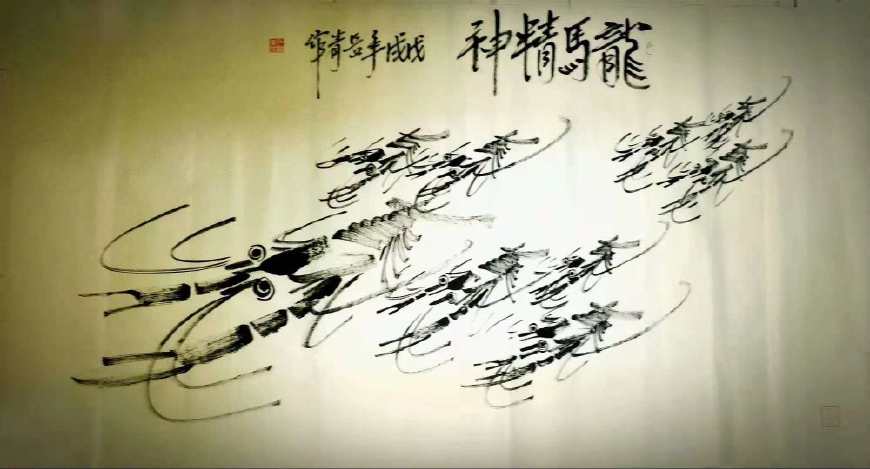 龍馬精神
戊戌年岳青作